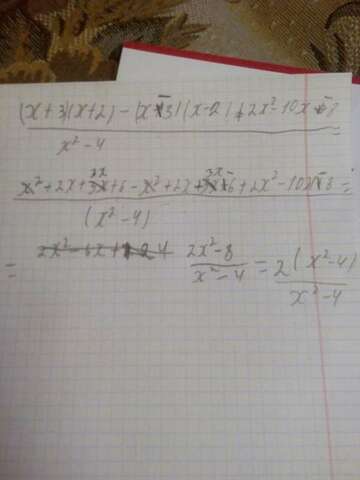 (x+3)(x+2)-(x-3)(x-2)+2x²-10x-8 =
x²-4
x²+2x+3x+6-x²+2x+3x-6+2x²-10x-8 =
(x²-4)
= 2x²-8 = 2(x²-4)
x²-4 x²-4